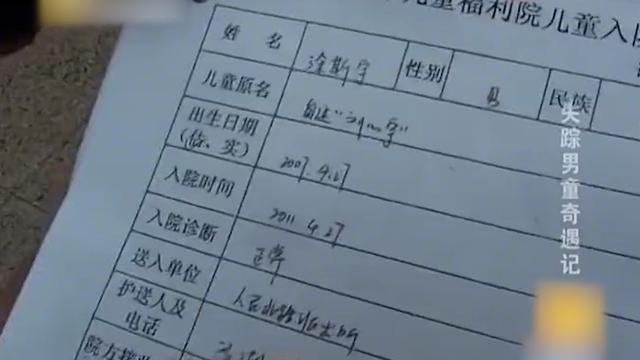 儿童福利院儿童入院
姓 名 涂斯宇 性别 男 民族
儿童原名 自述"
出生日期
(估、实) 2007.9.27
入院时间 2011.4.27
入院诊断 正常
送入单位 人民北路派出所
护送人及
电话
院方接
失踪男童奇遇记